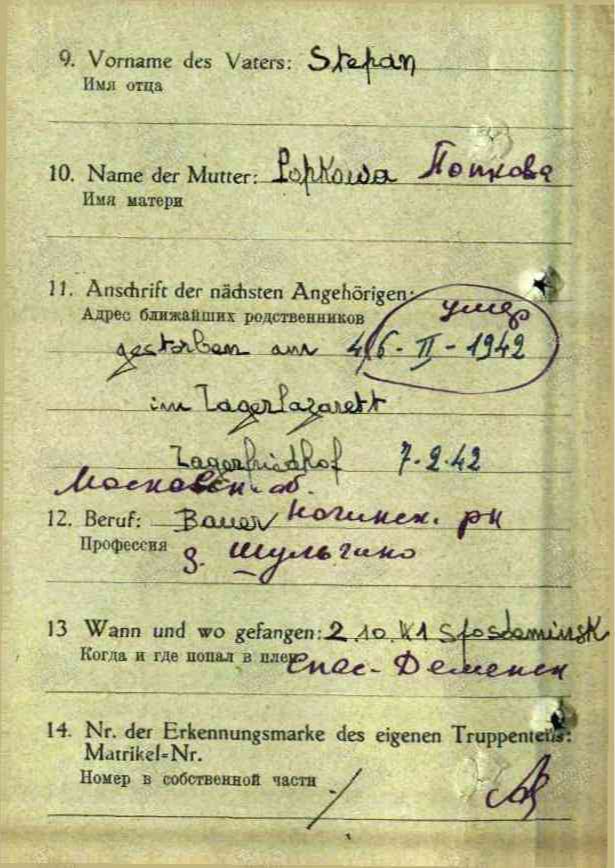 9. Vorname des Vaters: Stepan
Имя отца
10. Name der Mutter: Popkowa Попкова
Имя матери
11. Anschrift der nächsten Angehörigen:
Адрес ближайших родственников умер
gestorben am 6-II-1942
im Lagerlazarett
Lagerfriedhof 7.2.42
Московск. об.
12. Beruf: Bauer Ногинск. рн
Профессия д. Шульгино
13 Wann und wo gefangen: 2.10.41 Sposdeminsk
Когда и где попал в плен Спас-Деменск
14. Nr. der Erkennungsmarke des eigenen Truppenteils:
Matrikel-Nr.
Номер в собственной части /